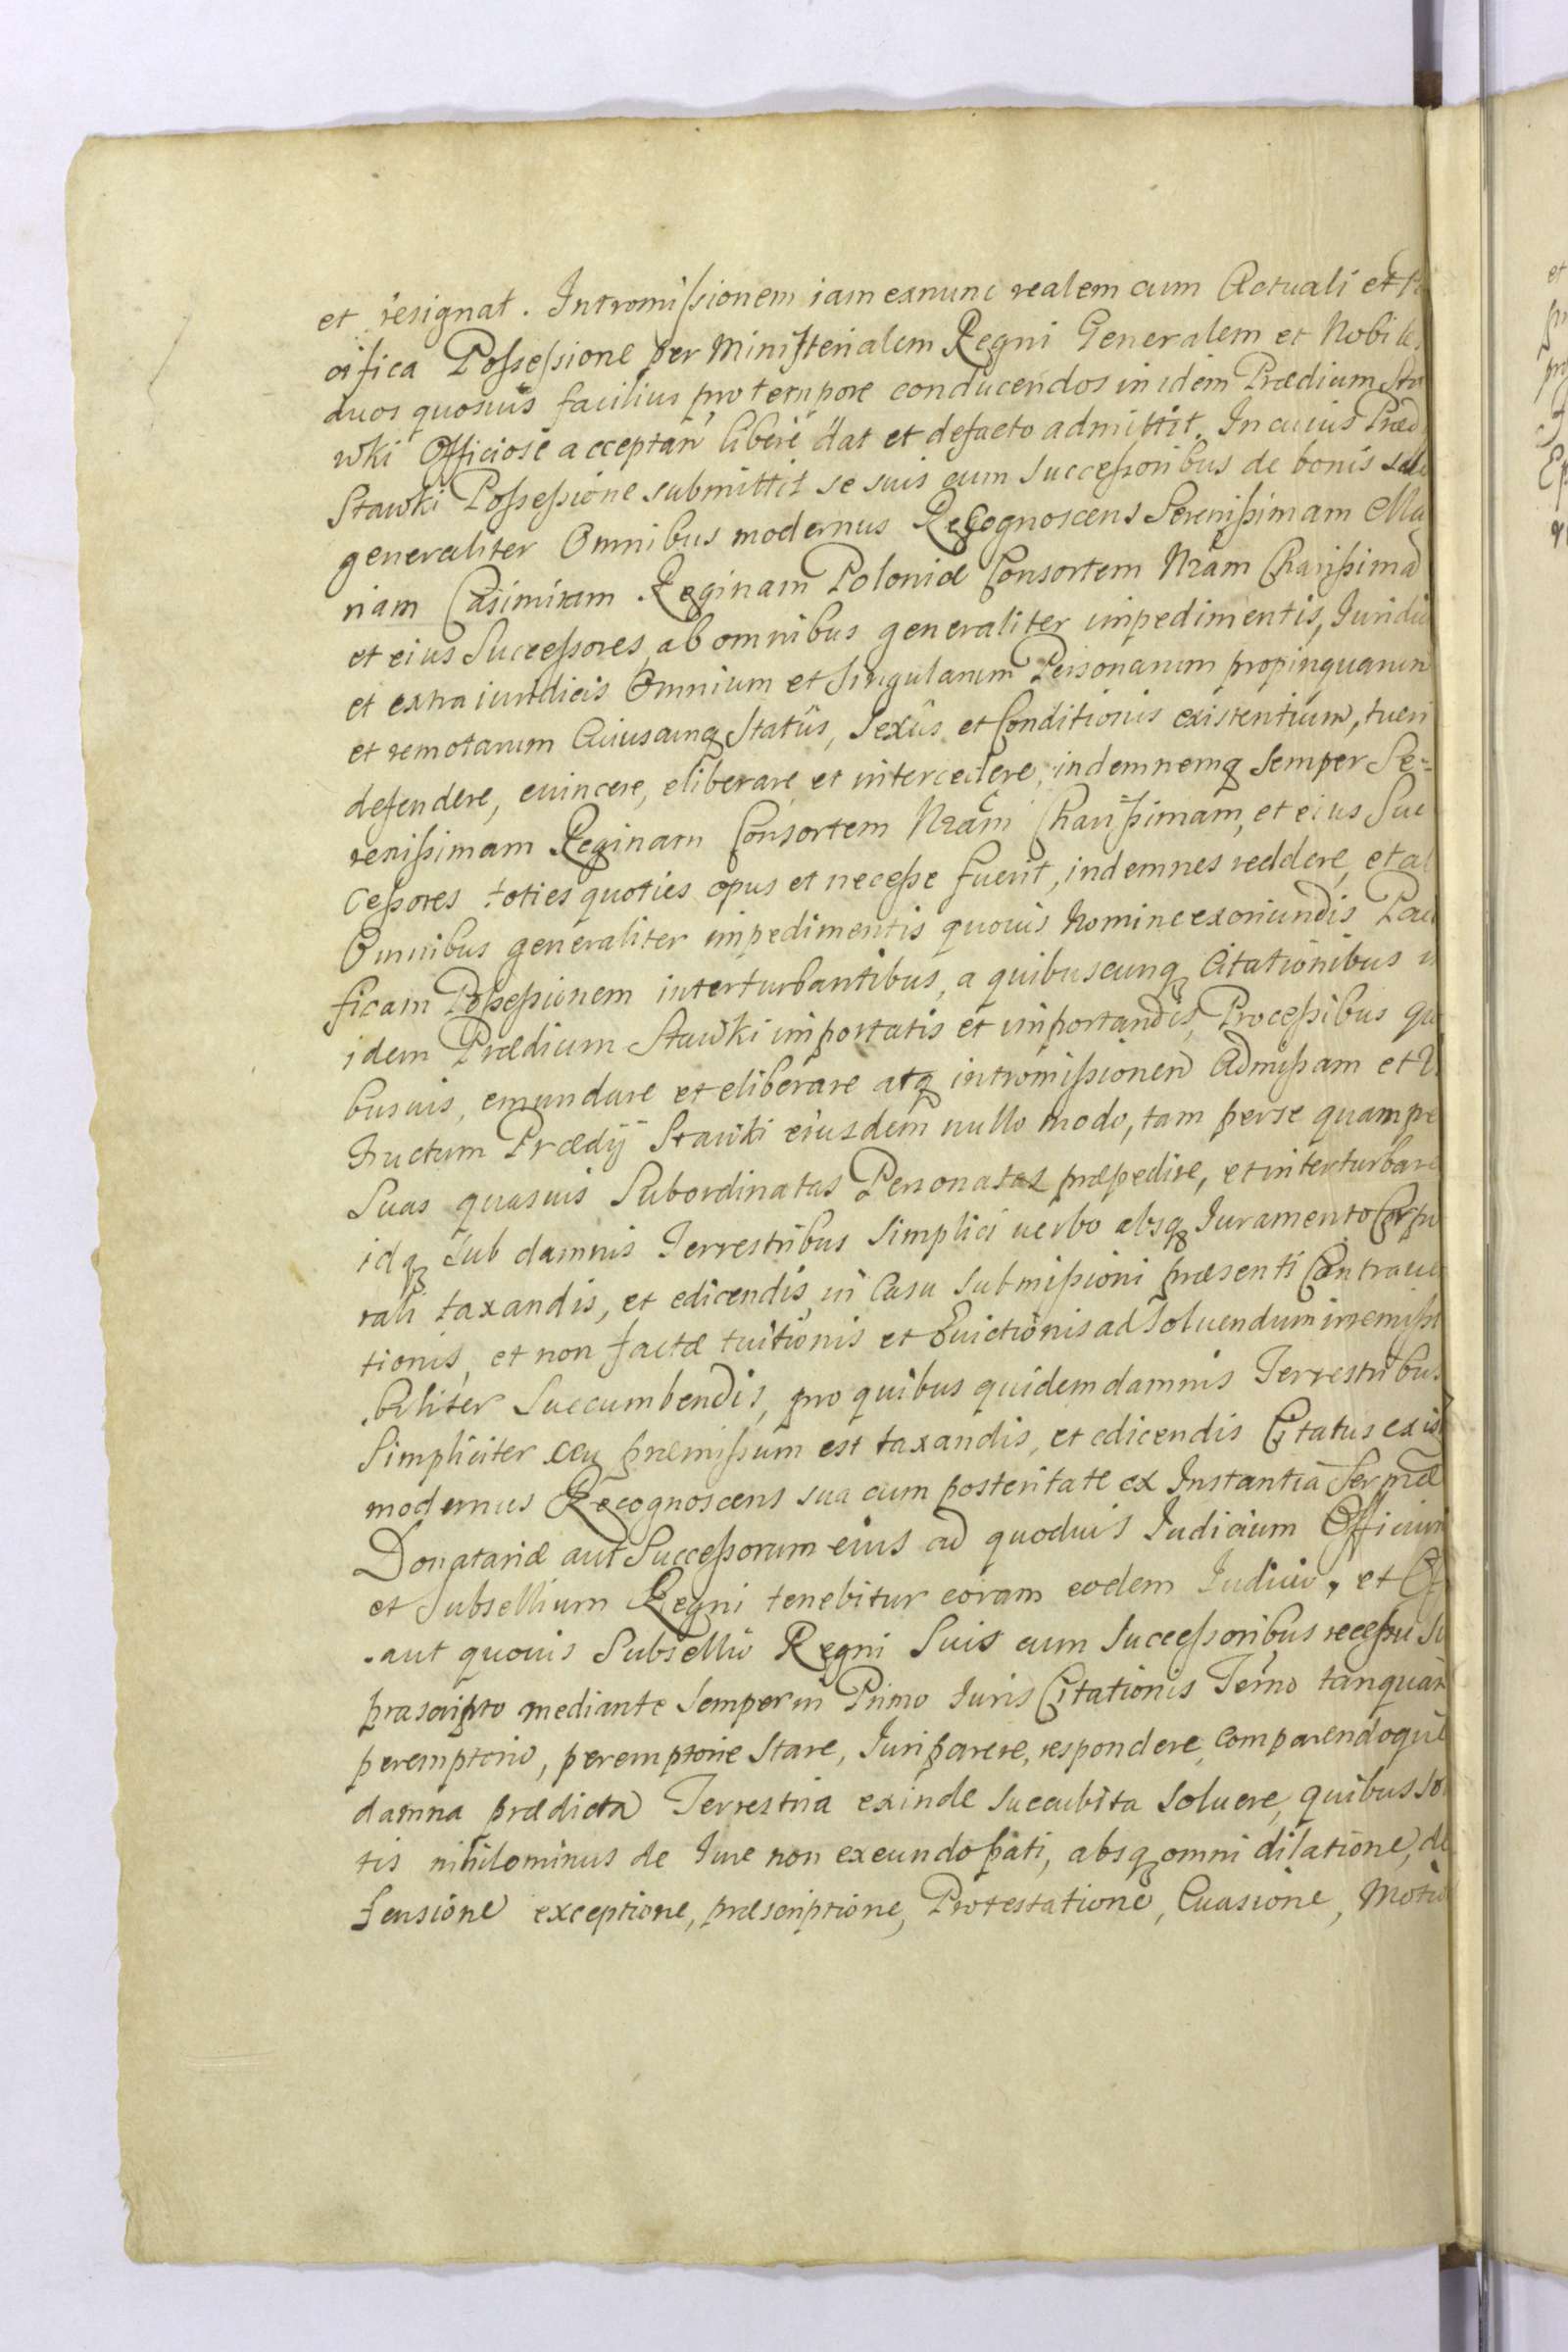 et resignat. Intromissionem iam exnunc realem cum Actuali et
cifica Possessione per Ministerialem Regni Generalem et Nobiles
duos quosuis facilius pro tempore conducendos in idem Prædium Sta
wki Officiose acceptan̄ libere dat et defacto admittit. In cuius Præd
Stawki Possessione submittit se suis cum Successoribus de bonis suis
generaliter Omnibus modernus Recognoscens Serenissimam Ma
riam Casimiram Reginam Poloniæ Consortem Nram Charissimā
et eius Successores ab omnibus generaliter impedimentis, Iuridic
et extra iuridicis Omnium et Singularum Personarum propinquarum
et remotarum Cuiuscunq Statûs, Sexûs et Conditionis existentium, tueri
defendere, euincere, eliberare et intercedere, indemnemq Semper Se-
renissimam Reginam Consortem Nram Charissimam, et eius Suc
cessores toties quoties opus et necesse fuerit, indemnes reddere, et ab
Omnibus generaliter impedimentis quouis Nomine exoriundis Paci
ficam Possessionem interturbantibus, a quibuscunq Citationibus in
idem Prædium Stawki importatis et importandis, Processibus qui
busuis, emundare et eliberare atq intromissionem Admissam et U
fructum Prædij Stawki eiusdem nullo modo, tam per se quam per
Suas quasuis Subordinatas Personatas præpedire, et interturbare
idq Sub damnis Terrestribus Simplici uerbo absq Iuramento Corpo
rali taxandis, et edicendis, in Casu Submissioni præsenti Contrauen
tionis, et non factæ tuitionis et Euictionis ad Soluendum irremissi
biliter Succumbendis, pro quibus quidem damnis Terrestribus
Simpliciter ceu præmissum est taxandis, et edicendis Citatus exis
modernus Recognoscens sua cum posteritate ex Instantia Sermæ
Donatariæ aut Successorum eius ad quoduis Iudicium Officium
et Subsellium Regni tenebitur coram eodem Iudicio, et Of
aut quouis Subsellio Regni Suis cum Successoribus recessu Su
præscripto mediante Semper in Primo Iuris Citationis Termo tanquam
peremptorio, peremptorie Stare, Iuri parere, respondere, comparendoque
damna prædicta Terrestria exinde Succubita Soluere, quibus Solu
tis nihilominus de Iure non exeundo pati, absq omni dilatione, de
fensione exceptione, præscriptione, Protestatione, Euasione, Motio